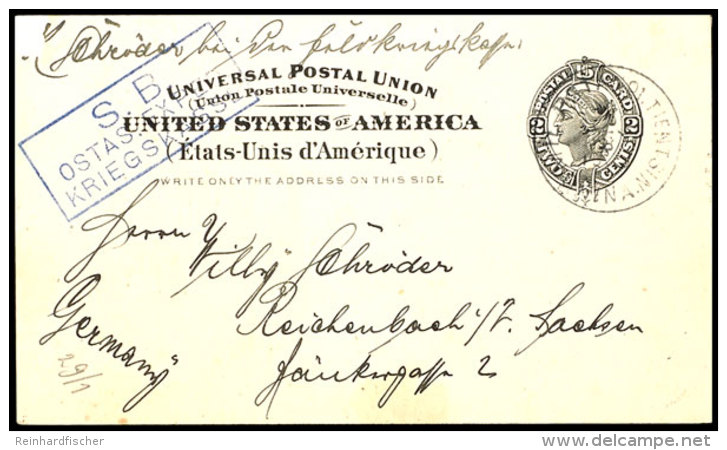 Schröder bei der Feldkriegskasse
S.B.
OSTAS. EXP.
KRIEGSK
UNIVERSAL POSTAL UNION
(Union Postale Universelle)
UNITED STATES OF AMERICA
(États-Unis d'Amérique)
WRITE ONLY THE ADDRESS ON THIS SIDE
POSTAL CARD
U.S.
2 CENTS 2
TIENTSIN
Herrn
Willy Schröder
Reichenbach i/V. Sachsen
2
Germany
29/1
Reinhardfischer
delcampe.net